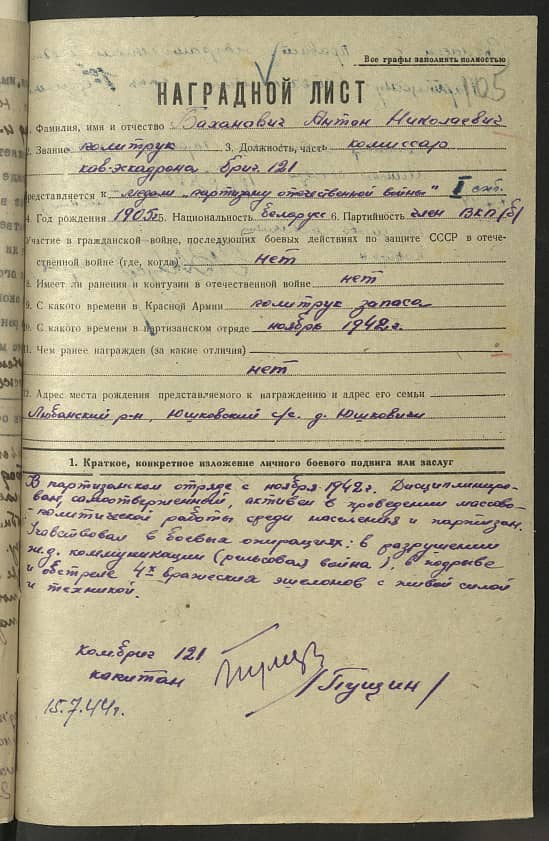 Все графы заполнять полностью
НАГРАДНОЙ ЛИСТ
1. Фамилия, имя и отчество Баханович Антон Николаевич
2. Звание политрук 3. Должность, часть комиссар
кав-эскадрона бриг. 121
Представляется к медали „партизану отечественной войны" I степ.
4. Год рождения 1905г. 5. Национальность беларус 6. Партийность член ВКП(б)
Участие в гражданской войне, последующих боевых действиях по защите СССР в отече-
ственной войне (где, когда) нет
8. Имеет ли ранения и контузии в отечественной войне нет
9. С какого времени в Красной Армии политрук запаса
10. С какого времени в партизанском отряде ноябрь 1942г.
11. Чем ранее награжден (за какие отличия)
нет
12. Адрес места рождения представляемого к награждению и адрес его семьи
Любанский р-н, Юшковский с/с. д. Юшковичи
1. Краткое, конкретное изложение личного боевого подвига или заслуг
В партизанском отряде с ноября 1942г. Дисциплиниро-
ван, самоотверженный, активен в проведении массово-
политической работы среди населения и партизан.
Участвовал в боевых операциях: в разрушении
ж.д. коммуникации (рельсовая война), в подрыве
и обстреле 4х вражеских эшелонов с живой силой
и техникой.
Комбриг 121
капитан /Пущин/
15.7.44г.